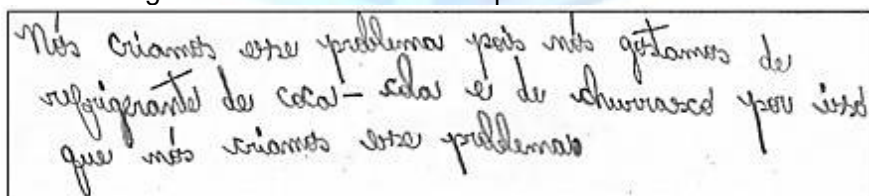 Nós criamos esse problema pois nós gostamos de
refrigerante de coca-cola e de churrasco por isso
que nós criamos esse problema